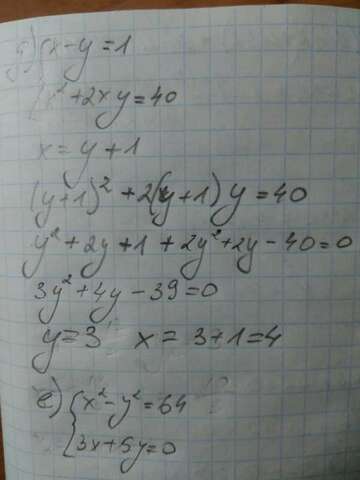 д) { x - y = 1
x² + 2xy = 40
x = y + 1
(y+1)² + 2(y+1)y = 40
y² + 2y + 1 + 2y² + 2y - 40 = 0
3y² + 4y - 39 = 0
y = 3 x = 3+1 = 4
е) { x² - y² = 64
3x + 5y = 0